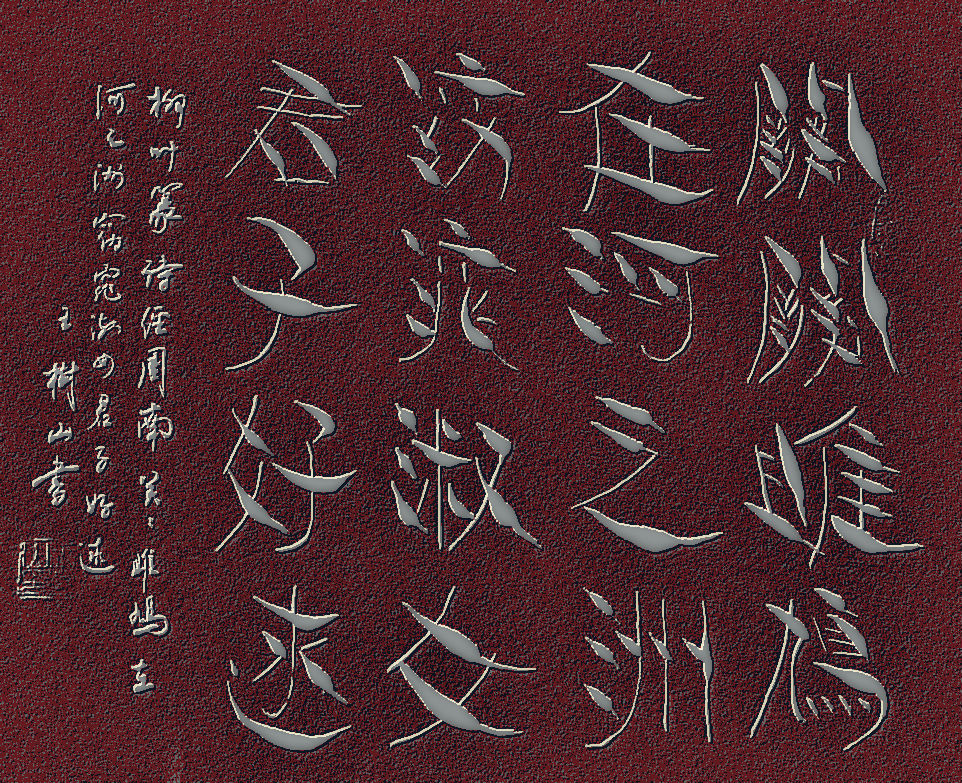 關關雎鳩
在河之洲
窈窕淑女
君子好逑
柳叶篆诗经周南关々雎鸠在
河之洲窈窕淑女君子好逑
王树山书